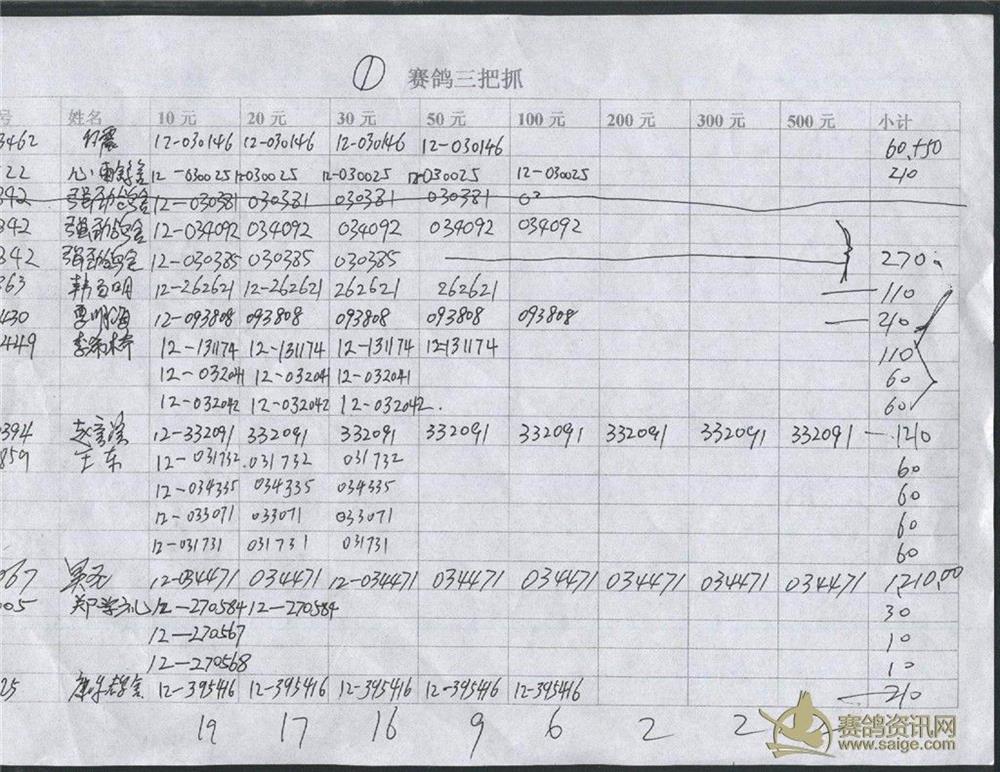 ① 赛鸽三把抓
号 姓名 10 元 20 元 30 元 50 元 100 元 200 元 300 元 500 元 小计
3462 12-030146 12-030146 12-030146 12-030146 60.+50
22 12-030025 12-030025 12-030025 12-030025 12-030025 210
342 12-030381 030381 030381 030381 03
342 12-034092 034092 034092 034092 034092
342 12-030385 030385 030385 270.
363 12-262621 12-262621 262621 262621 110
430 12-093808 093808 093808 093808 093808 210
449 12-131174 12-131174 12-131174 12-131174 110
12-032041 12-032041 12-032041 60
12-032042 12-032042 12-032042. 60
0394 12-332091 332091 332091 332091 332091 332091 332091 332091 1210
859 王东 12-031732. 031732 031732 60
12-034335 034335 034335 60
12-033071 033071 033071 60
12-031731 031731 031731 60
067 12-034471 034471 12-034471 034471 034471 034471 034471 034471 1210.00
005 郑学礼 12-270584 12-270584 30
12-270567 10
12-270568 10
25 12-395416 12-395416 12-395416 12-395416 12-395416 210
19 17 16 9 6 2 2
赛鸽资讯网
www.saige.com